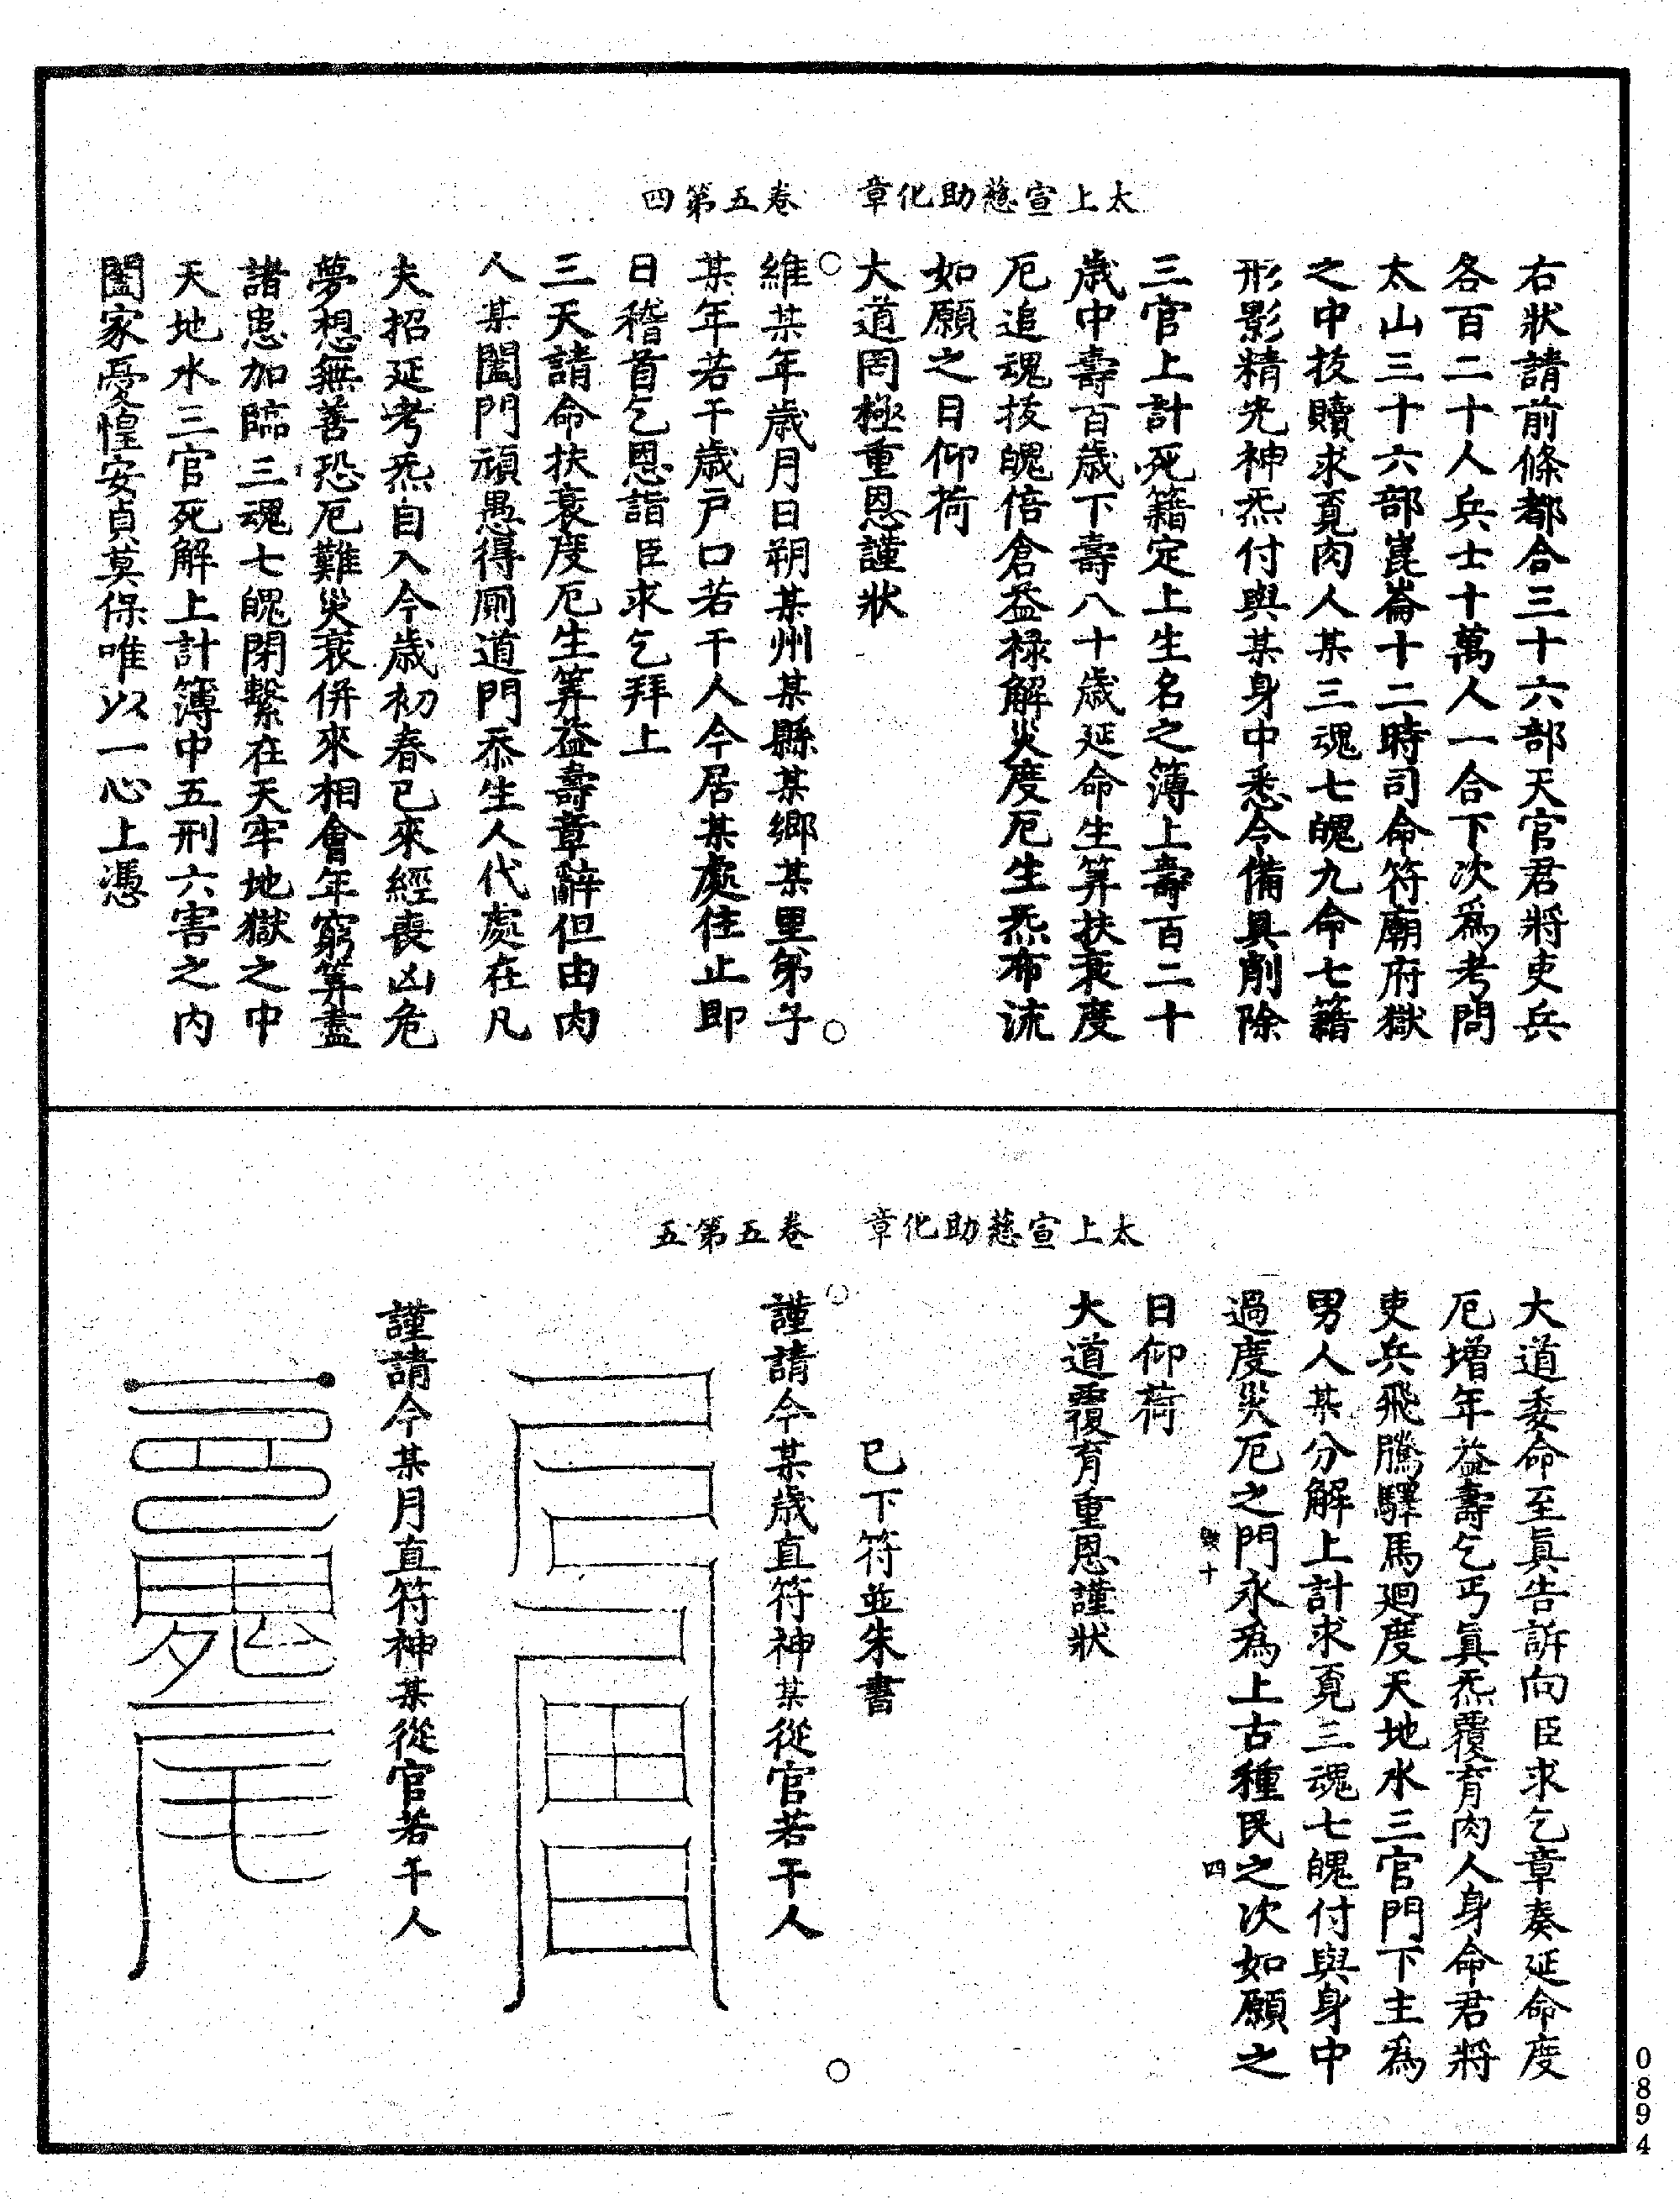 太上宣慈助化章　卷五第四
右狀請前條都合三十六部天官君將吏兵
各百二十人兵士十萬人一合下次爲考問
太山三十六部崑崙十二時司命符廟府獄
之中拔贖求覓肉人某三魂七魄九命七籍
形影精光神炁付與某身中悉令備具削除
三官上計死籍定上生名之簿上壽百二十
歲中壽百歲下壽八十歲延命生筭扶衰度
厄追魂拔魄倍倉益祿解災度厄生炁布流
如願之日仰荷
大道罔極重恩謹狀
維某年歲月日朔某州某縣某鄉某里弟子
某年若干歲戶口若干人今居某處住止即
日稽首乞恩詣臣求乞拜上
三天請命扶衰度厄生筭益壽章辭但由肉
人某闔門頑愚得厠道門忝生人代處在凡
夫招延考炁自入今歲初春已來經喪凶危
夢想無善恐厄難災衰併來相會年窮筭盡
諸患加臨三魂七魄閉繫在天牢地獄之中
天地水三官死解上計簿中五刑六害之內
闔家憂惶安貞莫保唯以一心上憑
太上宣慈助化章　卷五第五
大道委命至眞告訴向臣求乞章奏延命度
厄增年益壽乞丐眞炁覆育肉人身命君將
吏兵飛騰驛馬廻度天地水三官門下主爲
男人某分解上計求覓三魂七魄付與身中
過度災厄之門永爲上古種民之次如願之
十
四
日仰荷
大道覆育重恩謹狀
已下符並朱書
謹請今某歲直符神某從官若干人
謹請今某月直符神某從官若干人
0894